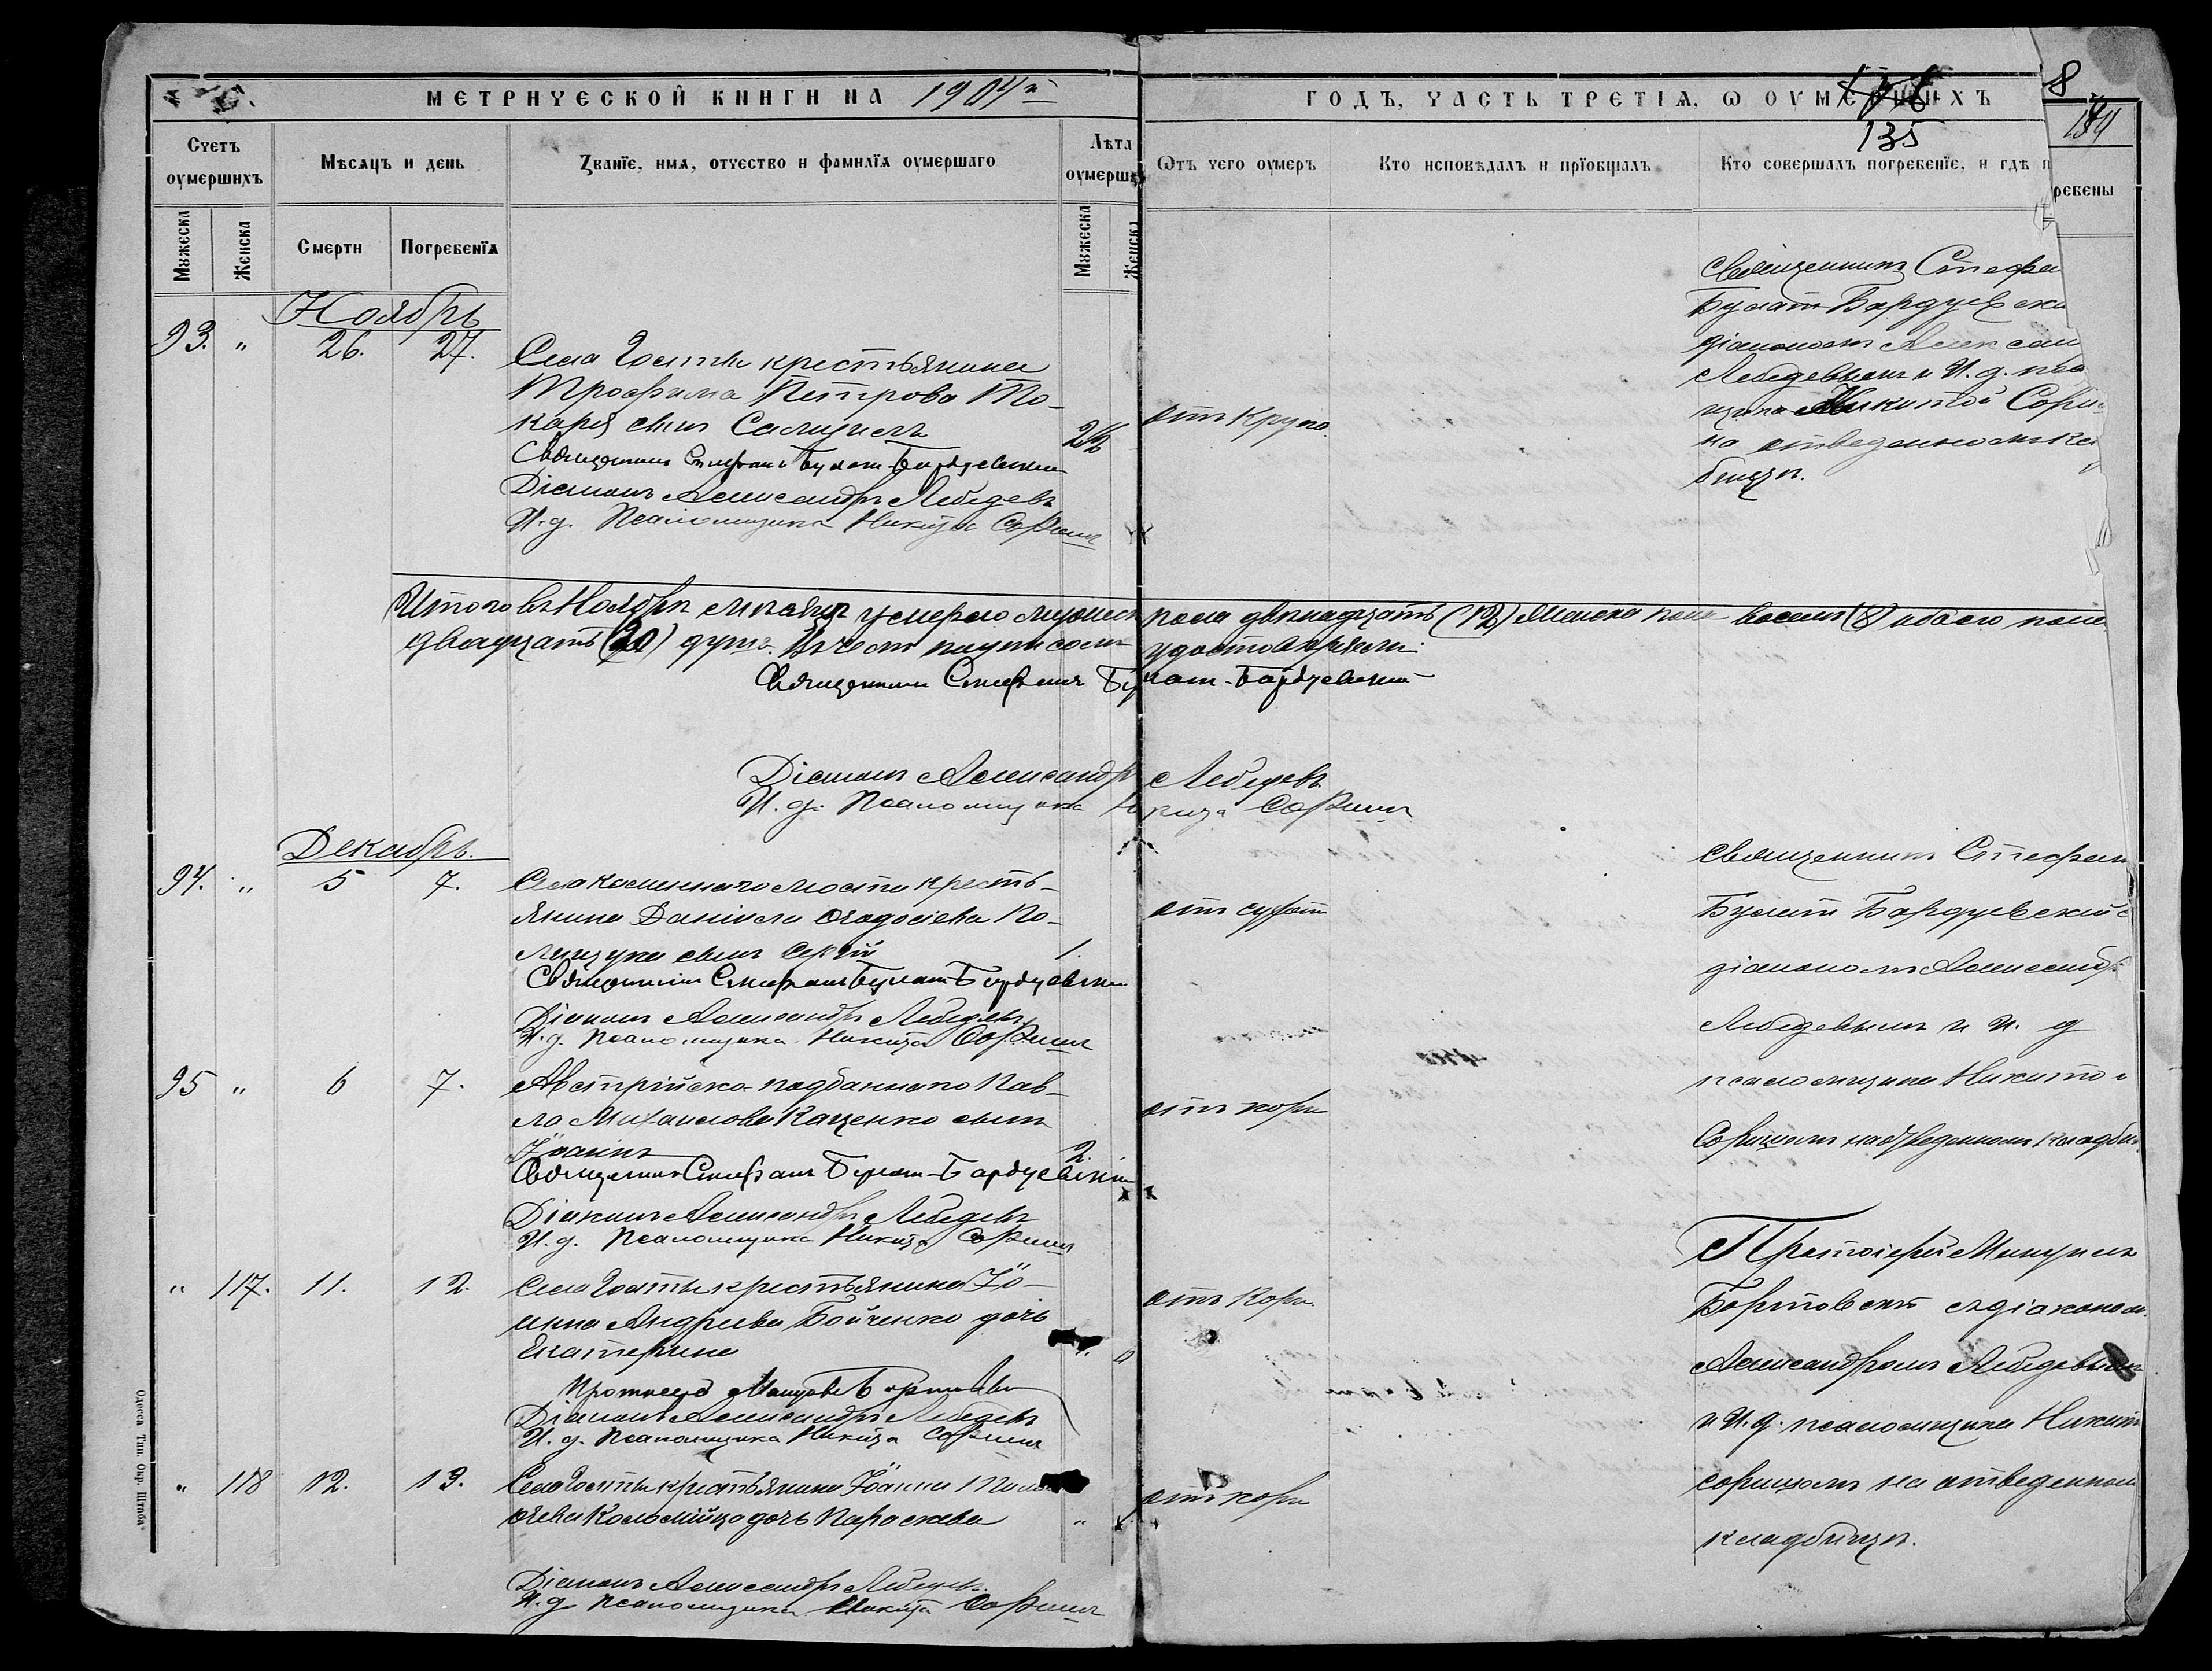 МЕТРИЧЕСКОЙ КНИГИ НА 1904й
ГОДЪ, ЧАСТЬ ТРЕТІЯ, Ѡ ОУМЕРШИХЪ
135
8
Счетъ оумершихъ
Мѣсяцъ и день
Званїе, имя, отчество и фамилїя оумершаго
Лѣта
оумерш
Ѿтъ чего оумеръ
Кто исповѣдалъ и прїобщалъ
Кто совершалъ погребенїе, и гдѣ п
ребены
Мужеска
Женска
Смерти
Погребенїя
Мужеска
Женска
Ноябрь
93. " 26. 27.
Села Гояны крестьянина
Трофима Петрова То-
каря сынъ Самуилъ
Священникъ Стефанъ Булат-Бардуевский
Діаконъ Александръ Лебедевъ
И. д. Псаломщика Никита Сорич
отъ крупа.
Священникъ Стефа
Булат Бардуевски
діакономъ Алексан
Лебедевымъ и И. д. пса
щика Никитой Сори
на отведенномъ кла
бищѣ.
Итого въ Ноябрѣ мѣсяцѣ умерло мужеск пола двѣнадцать (12) Женска пола восемь (8) обоего пола
двадцать (20) душъ. Въ чемъ подписомъ удостовѣряемъ
Священникъ Стефанъ Булат-Бардуевский
Діаконъ Александръ Лебедевъ
И. д. Псаломщика
Декабрь.
94. " 5 7.
Села Каменнаго моста кресть-
янина Даніила Ѳеодосіева По-
лищука сынъ Сергій
1.
Священникъ Стефанъ Булат Бардуевский
Діаконъ Александръ Лебедевъ
И. д. Псаломщика Никита Сорич
Священникъ Стефан
Булат Бардуевский
діакономъ Александр
Лебедевымъ и И. д
псаломщика Никито
95 " 6 7.
Австрійско-подданнаго Пав-
ла Михаилова Каценко сынъ
Іоаннъ
2.
Священникъ Стефанъ Булат-Бардуевский
Діаконъ Александръ Лебедевъ
И. д. Псаломщика Никита Сорич
отъ кори
" 117. 11. 12.
Села Гояны крестьянина Іо-
анна Андреева Бойченко дочь
Екатерина
Діаконъ Александръ Лебедевъ
И. д. Псаломщика Никита Сорич
отъ кори.
Протоіерей
съ діаконом
Александромъ Лебедевымъ
и И. д. псаломщика Никит
на отведенном
кладбищѣ.
" 118 12. 13.
Села Гояны крестьянина Іоанна
Коломійца дочь Параскева
"
отъ кори
Діаконъ Александръ Лебедевъ
И. д. Псаломщика Никита Сорич
Одесса Тип. Окр. Штаба